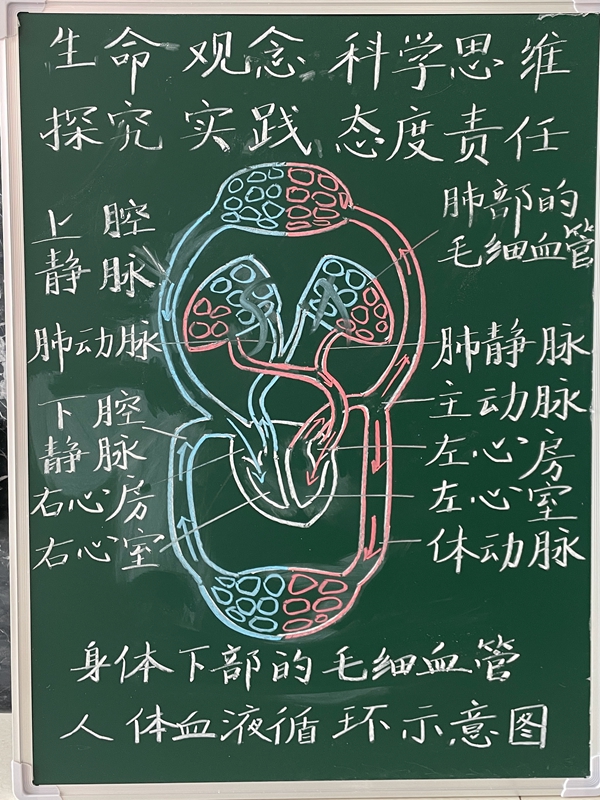 生命 观念 科学思维
探究 实践 态度责任
上腔
静脉
肺动脉
下腔
静脉
右心房
右心室
肺部的
毛细血管
肺静脉
主动脉
左心房
左心室
体动脉
身体下部的毛细血管
人体血液循环示意图